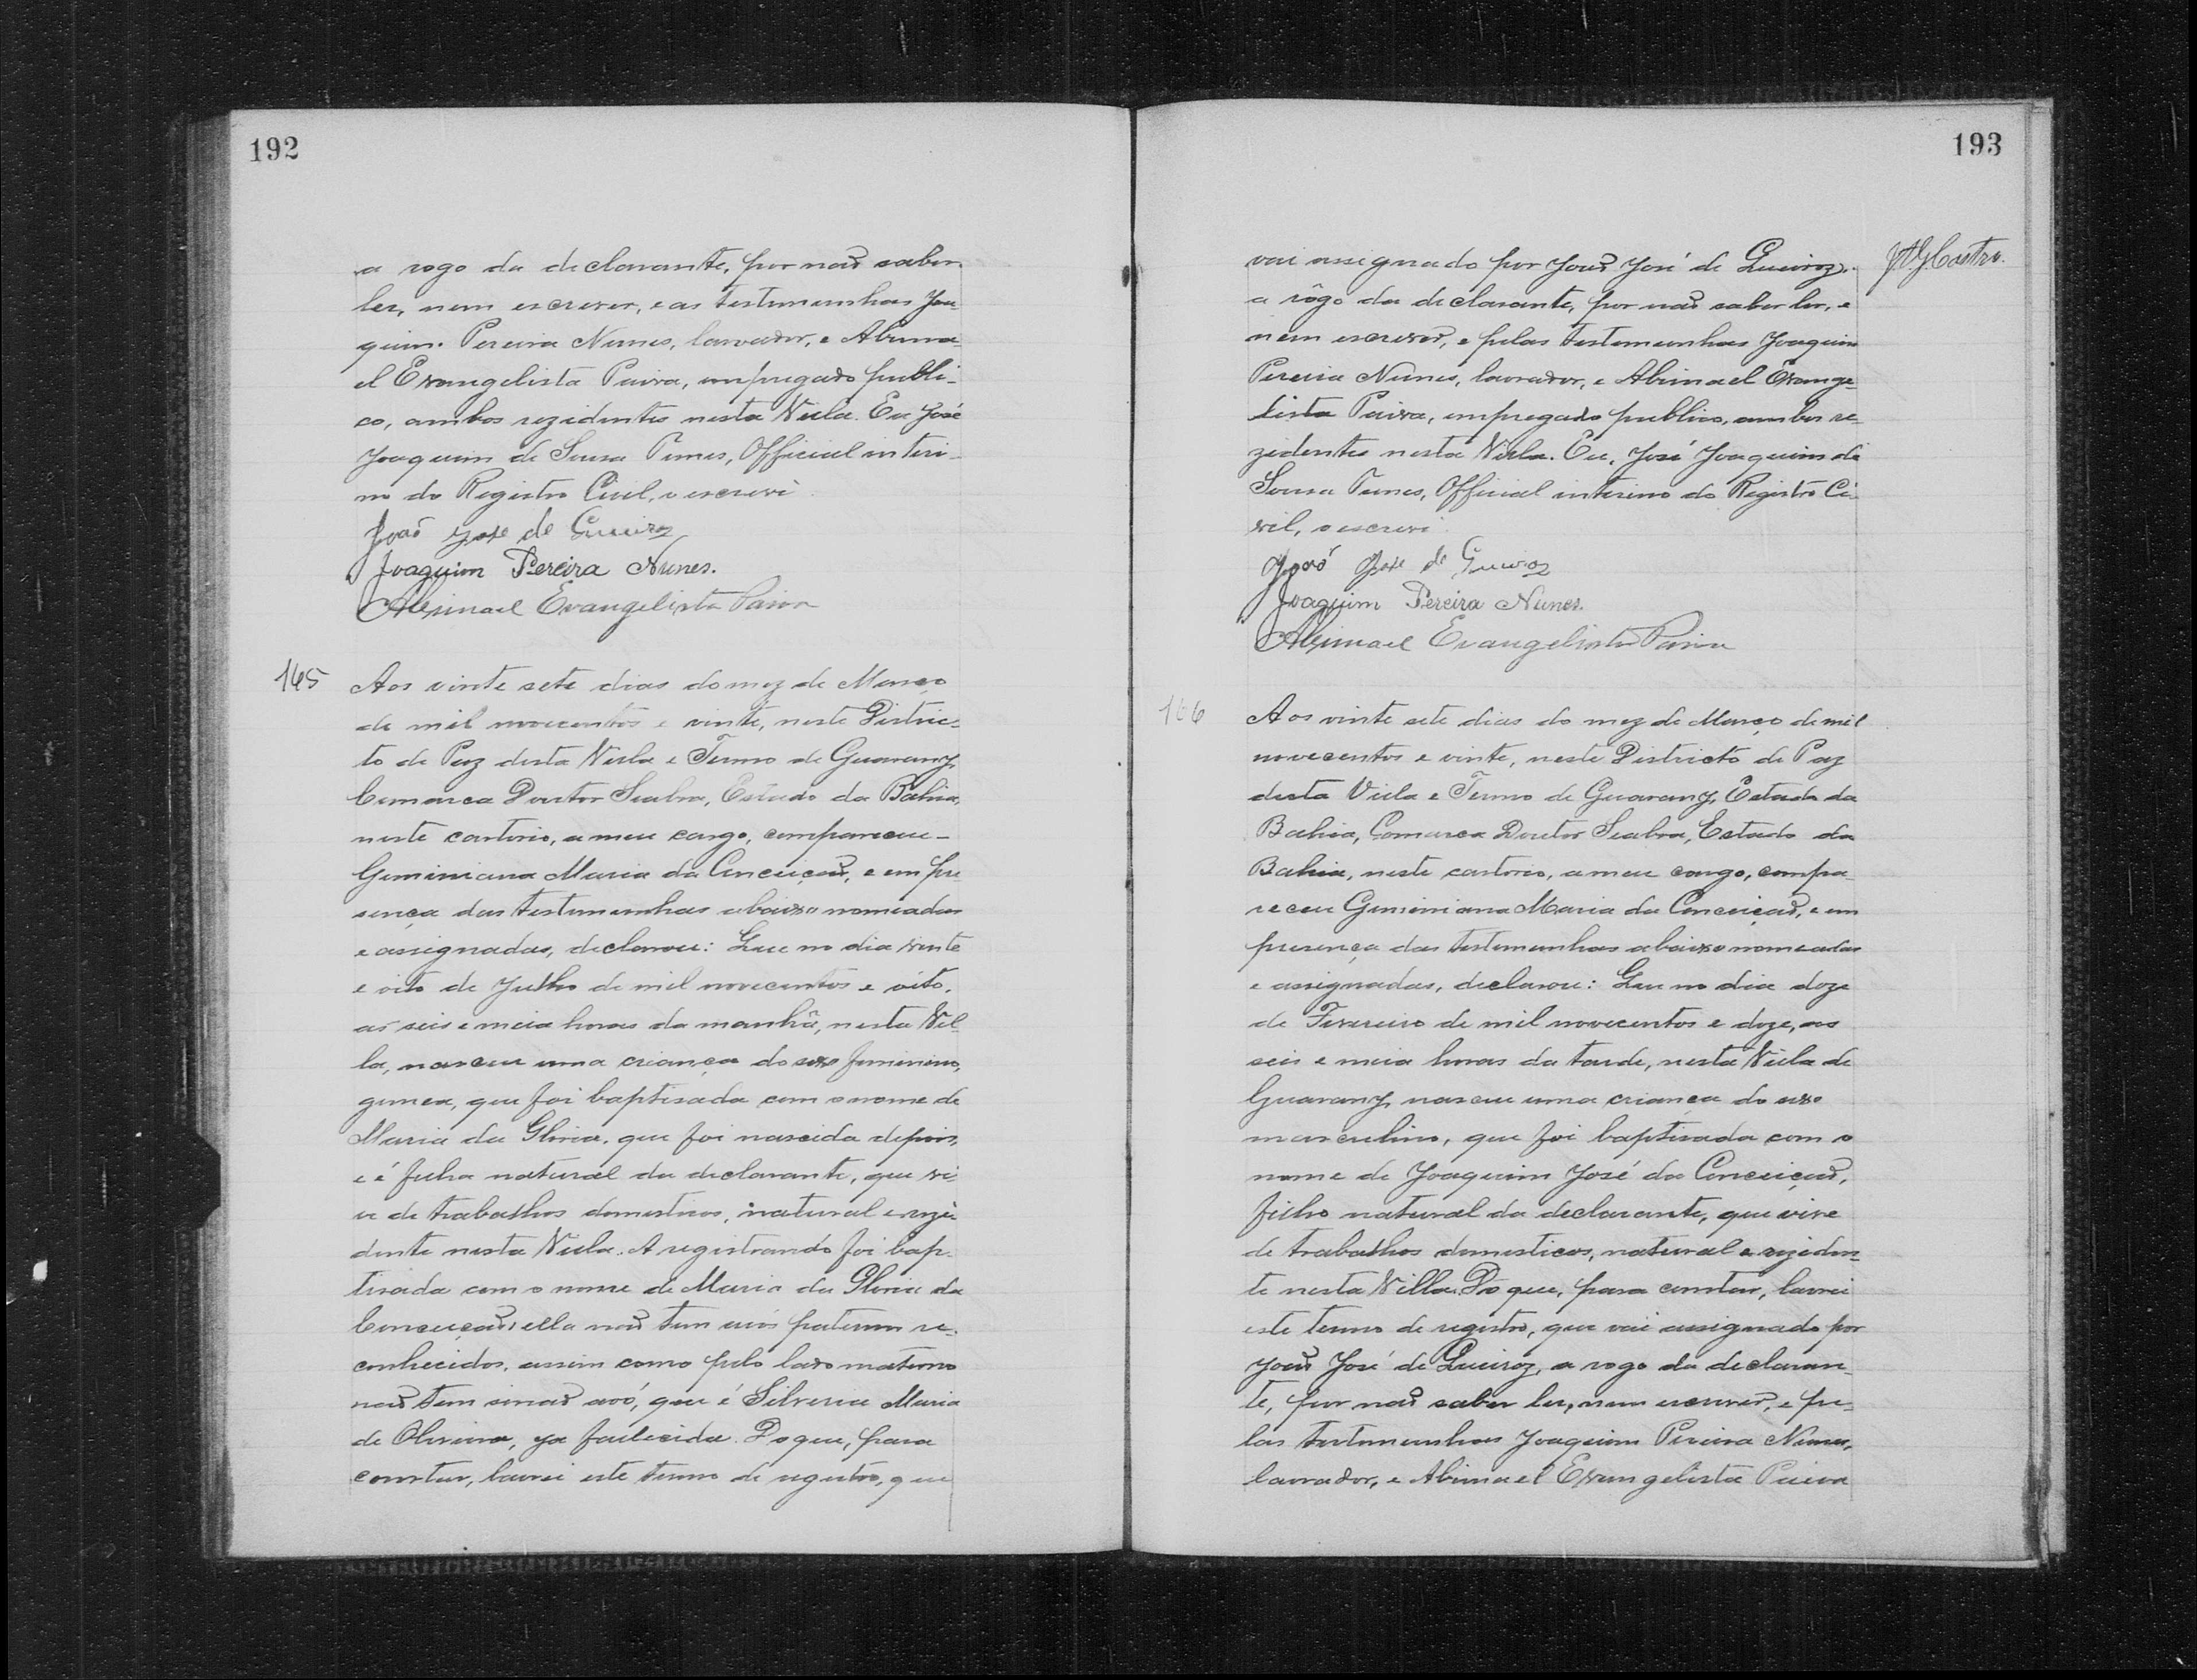 192
a rogo da declarante, por não saber
ler, nem escrever, e as testemunhas Joa-
quim Pereira Nunes, lavrador, e Abima-
el Evangelista Paiva, empregado publi-
co, ambos rezidentes nesta Villa. Eu José
Joaquim de Sousa Tunes, Official interi-
no do Registro Civil, o escrevi
João Jose de Queiroz
Joaquim Pereira Nunes.
Abimael Evangelista Paiva
165
Aos vinte sete dias do mez de Março
de mil novecentos e vinte, neste Distric-
to de Paz desta Villa e Termo de Guarany,
Comarca Doutor Seabra, Estado da Bahia,
neste cartorio, a meu cargo, compareceu-
Geminiana Maria da Conceição, e em pre-
sença das testemunhas abaixo nomeadas
e assignadas, declarou: Que no dia vinte
e oito de Julho de mil novecentos e oito,
as seis e meia horas da manhã, nesta Vil-
la, nasceu uma criança do sexo feminino,
gemea, que foi baptisada com o nome de
Maria da Gloria, que foi nascida depois,
e é filha natural da declarante, que vi-
ve de trabalhos domesticos, natural e rezi-
dente nesta Villa. A registrando foi bap-
tisada com o nome de Maria da Gloria da
Conceição; ella não tem avós paternos re-
conhecidos, assim como pelo lado materno
não tem sinão avó, que é Silveria Maria
de Oliveira, ja fallecida. Do que, para
constar, lavrei este termo de registro, que
193
vai assignado por João José de Queiroz,
J A G Castro.
a rôgo da declarante, por não saber ler, e
nem escrever, e pelas testemunhas Joaquim
Pereira Nunes, lavrador, e Abimael Evange-
lista Paiva, empregado publico, ambos re-
zidentes nesta Villa. Eu, José Joaquim de
Sousa Tunes, Official interino do Registro Ci-
vil, o escrevi
João Jose de Queiroz
Joaquim Pereira Nunes.
Abimael Evangelista Paiva
166
Aos vinte sete dias do mez de Março de mil
novecentos e vinte, neste Districto de Paz
desta Villa e Termo de Guarany, Estado da
Bahia, Comarca Doutor Seabra, Estado da
Bahia, neste cartorio, a meu cargo, compa-
receu Geminiana Maria da Conceição, e em
presença das testemunhas abaixo nomeadas
e assignadas, declarou: Que no dia doze
de Fevereiro de mil novecentos e doze, as
seis e meia horas da tarde, nesta Villa de
Guarany, nasceu uma criança do sexo
masculino, que foi baptisada com o
nome de Joaquim José da Conceição,
filho natural da declarante, que vive
de trabalhos domesticos, natural e reziden-
te nesta Villa. Do que, para constar, lavrei
este termo de registro, que vai assignado por
João José de Queiroz, a rogo da declaran-
te, por não saber ler, nem escrever, e pe-
las testemunhas Joaquim Pereira Nunes,
lavrador, e Abimael Evangelista Paiva